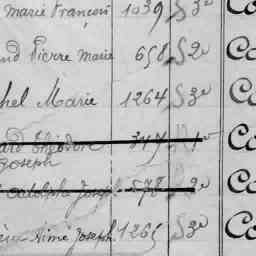 Marie François 1039 S 3º Co
nd Pierre Marie 658 S 2º Co
hel Marie 1264 S 3º Co
ard Théodore 347 1º Co
Joseph
Adolphe Joseph 578 S 2º Co
Aimé Joseph 1265 S 3º Co